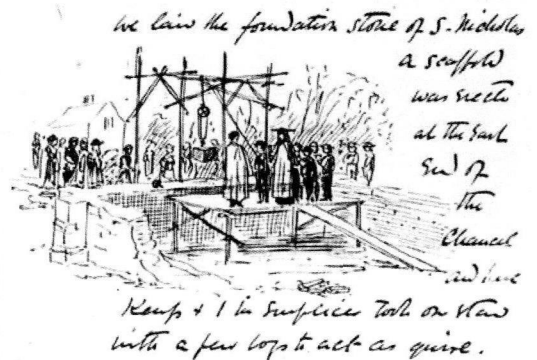 we laid the foundation stone of S. Nicholas
a scaffold
was erected
at the East
End of
the
Chancel
and here
Kemp & I in Surplices took our stand
with a few boys to act as quire.